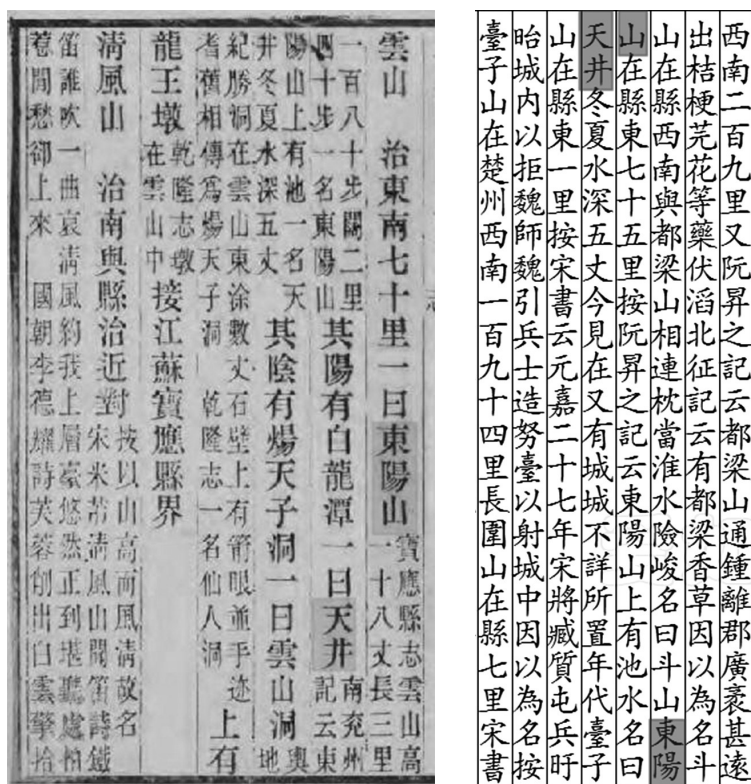 雲山　治東南七十里一曰東陽山寶應縣志雲山高一十八丈長三里
一百八十步闊二里四十步一名東陽山其陽有白龍潭一曰天井南兖州記云東
陽山上有池一名天井冬夏水深五丈其陰有煬天子洞一曰雲山洞輿地
紀勝洞在雲山東徐敷丈石壁上有箭眼並手迹耆舊相傳爲煬天子洞　乾隆志一名仙人洞上有
龍王墩乾隆志墩在雲山中接江蘇寶應縣界
清風山　治南與縣治近對按以山高而風清故名宋米芾清風山聞笛詩鐵
笛誰吹一曲哀清風約我上層臺悠然正到堪聽處柏惹閒愁卻上來　國朝李德耀詩芙蓉削出白雲擎拾
西南二百九里又阮昇之記云都梁山通鍾離郡廣袤甚遠
出桔梗芫花等藥伏滔北征記云有都梁香草因以為名斗
山在縣西南與都梁山相連枕當淮水險峻名曰斗山東陽
山在縣東七十五里按阮昇之記云東陽山上有池水名曰
天井冬夏水深五丈今見在又有城城不詳所置年代臺子
山在縣東一里按宋書云元嘉二十七年宋將臧質屯兵盱
眙城内以拒魏師魏引兵士造努臺以射城中因以為名按
臺子山在楚州西南一百九十四里長圍山在縣七里宋書